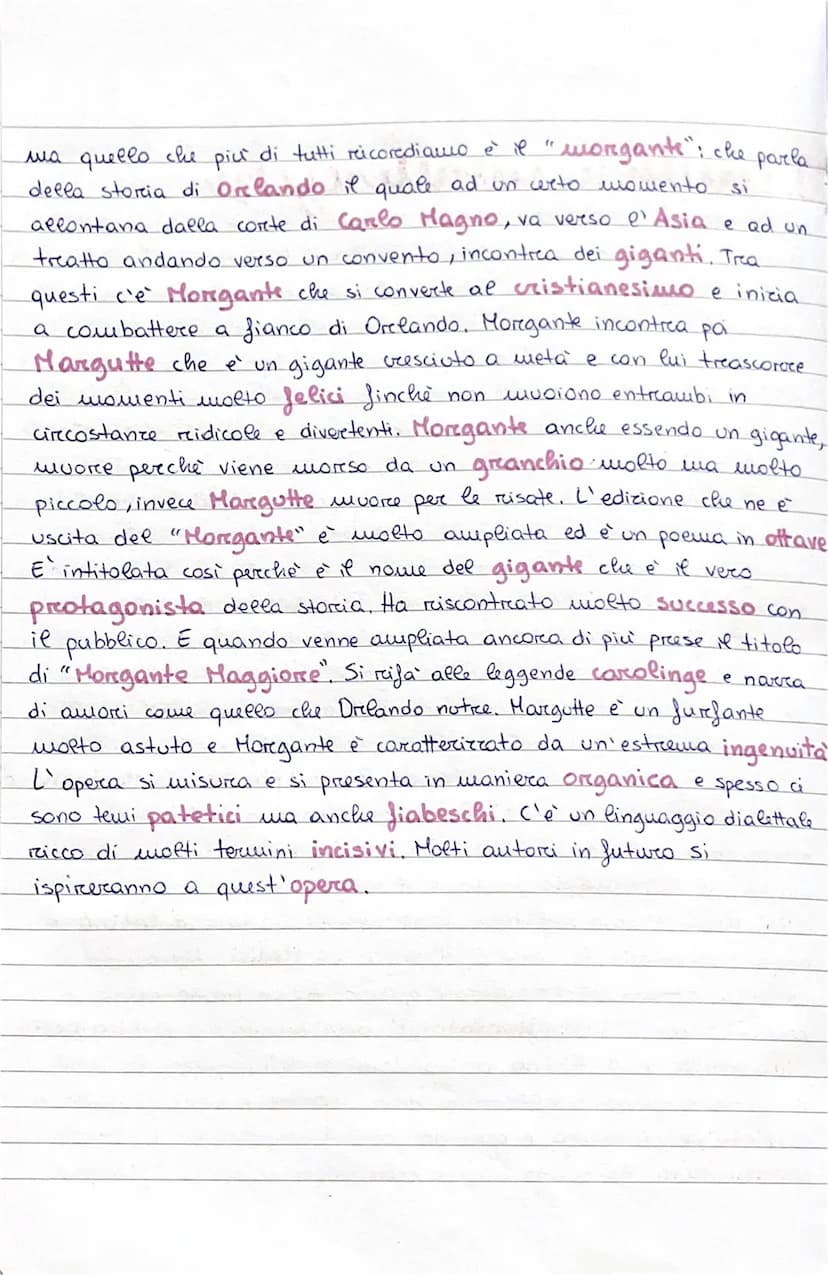 ma quello che più di tutti ricordiamo è il "Morgante"; che parla
della storia di Orlando il quale ad un certo momento si
allontana dalla corte di Carlo Magno, va verso l'Asia e ad un
tratto andando verso un convento, incontra dei giganti. Tra
questi c'è Morgante che si converte al cristianesimo e inizia
a combattere a fianco di Orlando. Morgante incontra poi
Margutte che è un gigante cresciuto a metà e con lui trascorre
dei momenti molto felici finchè non muoiono entrambi in
circostanze ridicole e divertenti. Morgante anche essendo un gigante,
muore perchè viene morso da un granchio molto ma molto
piccolo, invece Margutte muore per le risate. L'edizione che ne è
uscita del "Morgante" è molto ampliata ed è un poema in ottave
E' intitolata così perchè è il nome del gigante che è il vero
protagonista della storia. Ha riscontrato molto successo con
il pubblico. E quando venne ampliata ancora di più prese il titolo
di "Morgante Maggiore". Si rifà alle leggende carolinge e narra
di amori come quello che Orlando nutre. Margutte è un furfante
molto astuto e Morgante è caratterizzato da un'estrema ingenuità
L'opera si misura e si presenta in maniera organica e spesso ci
sono temi patetici ma anche fiabeschi. C'è un linguaggio dialettale
ricco di molti termini incisivi. Molti autori in futuro si
ispireranno a quest'opera.